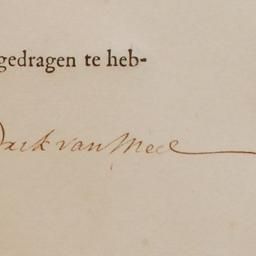 gedragen te heb-
Dirk van Meel